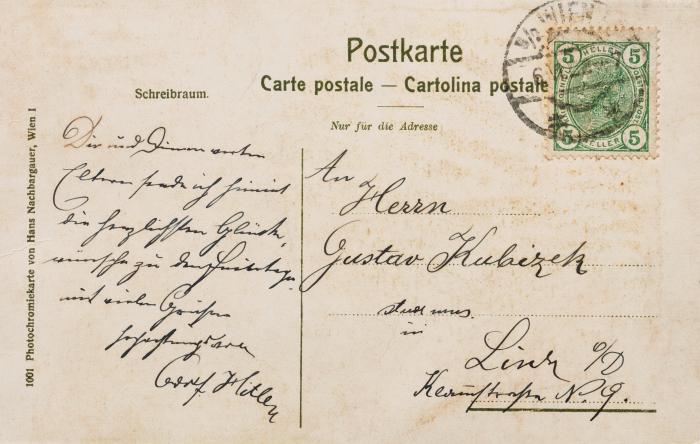 Postkarte
Carte postale — Cartolina postale
Schreibraum.
Nur für die Adresse
1001 Photochromiekarte von Hans Nachbargauer, Wien I
WIEN
5 HELLER 5
5 HELLER 5
Dir und Deinen werten
Eltern sende ich hiemit
die herzlichsten Glück-
wünsche zu den Feiertagen
mit vielen Grüßen
hochachtungsvoll
Adolf Hitler
An
Herrn
Gustav Kubizek
stud mus.
in
Linz a/D
Klammstraße N. 9.